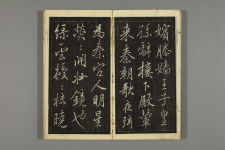 嬪媵嬙王子皇
孫辭樓下殿輦
來秦朝歌夜弦
為秦宮人明星
熒〻開妝鏡也
綠雲擾〻梳曉